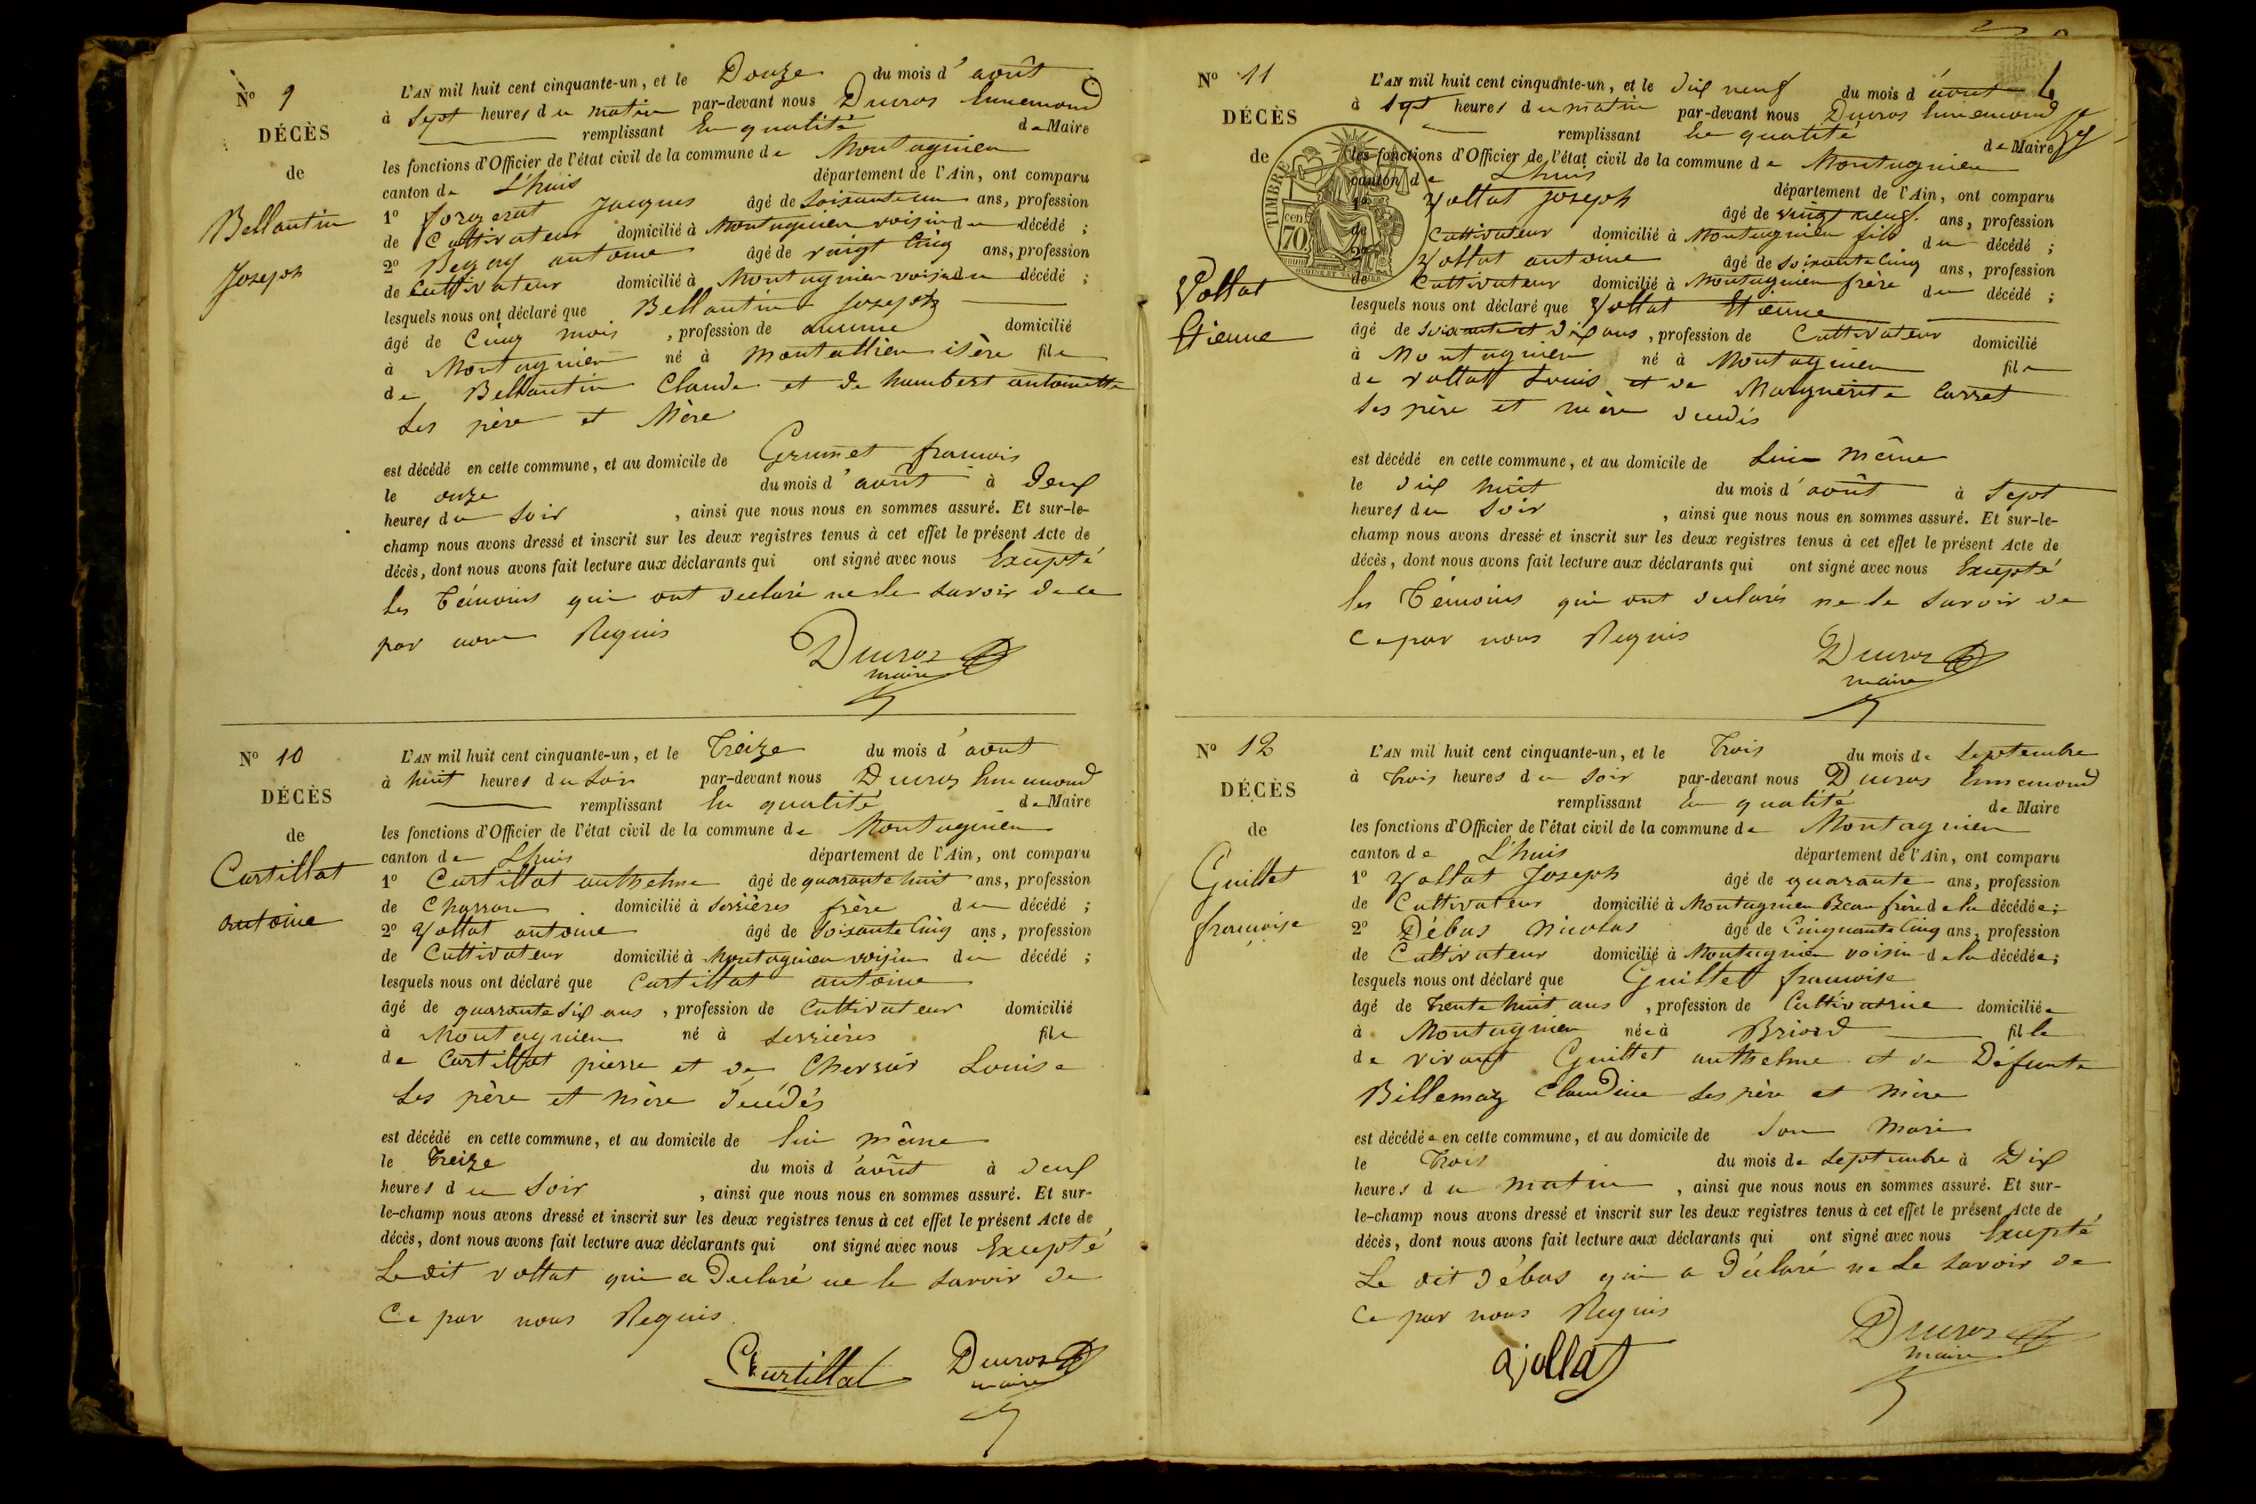 N° 9
DÉCÈS
de
Bellantin
Joseph
L'AN mil huit cent cinquante-un, et le Douze du mois d'août
à Sept heures du matin par-devant nous Ducros Ennemond
remplissant En qualité de Maire
les fonctions d'Officier de l'état civil de la commune de Montagnieu
canton de L'huis département de l'Ain, ont comparu
1° Jacques âgé de Soixante un ans, profession
de Cultivateur domicilié à Montagnieu voisin du décédé ;
2° antoine âgé de vingt Cinq ans, profession
de Cultivateur domicilié à Montagnieu voisin du décédé ;
lesquels nous ont déclaré que Bellantin Joseph
âgé de Cinq mois, profession de aucune domicilié
à Montagnieu né à Montallieu isère fils
de Bellantin Claude et de humbert antoinette
Ses père et Mère
est décédé en cette commune, et au domicile de Grumet francois
le onze du mois d'août à Deux
heures du Soir, ainsi que nous nous en sommes assuré. Et sur-le-
champ nous avons dressé et inscrit sur les deux registres tenus à cet effet le présent Acte de
décès, dont nous avons fait lecture aux déclarants qui ont signé avec nous Excepté
les Témoins qui ont declaré ne le savoir de ce
par nous Requis
Ducros
maire
N° 10
DÉCÈS
de
Curtillat
antoine
L'AN mil huit cent cinquante-un, et le Treize du mois d'août
à huit heures du Soir par-devant nous Ducros Ennemond
remplissant En qualité de Maire
les fonctions d'Officier de l'état civil de la commune de Montagnieu
canton de L'huis département de l'Ain, ont comparu
1° Curtillat anthelme âgé de quarante huit ans, profession
de Charron domicilié à Serrières frère du décédé ;
2° Vollat antoine âgé de Soixante Cinq ans, profession
de Cultivateur domicilié à Montagnieu voisin du décédé ;
lesquels nous ont déclaré que Curtillat antoine
âgé de quarante six ans, profession de Cultivateur domicilié
à Montagnieu né à Serrières fils
de Curtillat pierre et de Louise
Ses père et mère décédés
est décédé en cette commune, et au domicile de lui même
le Treize du mois d'août à deux
heures du Soir, ainsi que nous nous en sommes assuré. Et sur-
le-champ nous avons dressé et inscrit sur les deux registres tenus à cet effet le présent Acte de
décès, dont nous avons fait lecture aux déclarants qui ont signé avec nous Excepté
Le dit vollat qui a Declaré ne le savoir de
Ce par nous Requis.
Curtillat Ducros
maire
N° 11
DÉCÈS
de
Vollat
Etienne
TIMBRE
70 cen
L'AN mil huit cent cinquante-un, et le dix neuf du mois d'août
à Sept heures du matin par-devant nous Ducros Ennemond
remplissant En qualité de Maire
les fonctions d'Officier de l'état civil de la commune de Montagnieu
canton de L'huis département de l'Ain, ont comparu
1° Vollat Joseph âgé de vingt neuf ans, profession
de Cultivateur domicilié à Montagnieu fils du décédé ;
2° Vollat antoine âgé de Soixante Cinq ans, profession
de Cultivateur domicilié à Montagnieu frère du décédé ;
lesquels nous ont déclaré que Vollat Etienne
âgé de Soixante et Dix ans, profession de Cultivateur domicilié
à Montagnieu né à Montagnieu fils
de vollat Louis et de Marguerite Carret
Ses père et mère décédés
est décédé en cette commune, et au domicile de Lui même
le dix huit du mois d'août à Sept
heures du Soir, ainsi que nous nous en sommes assuré. Et sur-le-
champ nous avons dressé et inscrit sur les deux registres tenus à cet effet le présent Acte de
décès, dont nous avons fait lecture aux déclarants qui ont signé avec nous Excepté
les Témoins qui ont declarés ne le savoir de
Ce par nous Requis
Ducros
maire
N° 12
DÉCÈS
de
Guillet
francoise
L'AN mil huit cent cinquante-un, et le Trois du mois de Septembre
à Trois heures du Soir par-devant nous Ducros Ennemond
remplissant En qualité de Maire
les fonctions d'Officier de l'état civil de la commune de Montagnieu
canton de L'huis département de l'Ain, ont comparu
1° Vollat Joseph âgé de quarante ans, profession
de Cultivateur domicilié à Montagnieu Beau frère de la décédée ;
2° Débas Nicolas âgé de Cinquante Cinq ans, profession
de Cultivateur domicilié à Montagnieu voisin de la décédée ;
lesquels nous ont déclaré que Guillet francoise
âgé de Trente huit ans, profession de Cultivatrice domiciliée
à Montagnieu née à Briord fille
de vivant Guillet anthelme et de Défunte
Billemaz Claudine Ses père et mère
est décédée en cette commune, et au domicile de Son Mari
le Trois du mois de Septembre à Dix
heures du matin, ainsi que nous nous en sommes assuré. Et sur-
le-champ nous avons dressé et inscrit sur les deux registres tenus à cet effet le présent Acte de
décès, dont nous avons fait lecture aux déclarants qui ont signé avec nous Excepté
Le dit Débas qui a déclaré ne le savoir de
Ce par nous Requis
Ducros
maire